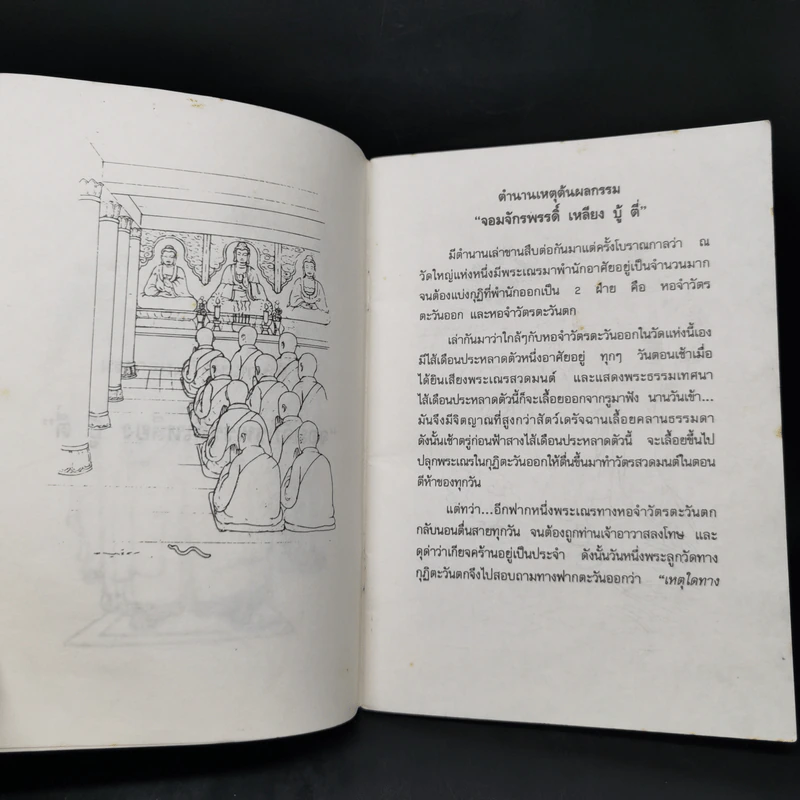 ตำนานเหตุต้นผลกรรม
“จอมจักรพรรดิ์ เหลียง บู้ ตี่”
มีตำนานเล่าขานสืบต่อกันมาแต่ครั้งโบราณกาลว่า ณ
วัดใหญ่แห่งหนึ่งมีพระเณรมาพำนักอาศัยอยู่เป็นจำนวนมาก
จนต้องแบ่งกุฏิที่พำนักออกเป็น 2 ฝ่าย คือ หอจำวัตร
ตะวันออก และหอจำวัตรตะวันตก
เล่ากันมาว่าใกล้ๆกับหอจำวัตรตะวันออกในวัดแห่งนี้เอง
มีไส้เดือนประหลาดตัวหนึ่งอาศัยอยู่ ทุกๆ วันตอนเช้าเมื่อ
ได้ยินเสียงพระเณรสวดมนต์ และแสดงพระธรรมเทศนา
ไส้เดือนประหลาดตัวนี้ก็จะเลื้อยออกจากรูมาฟัง นานวันเข้า...
มันจึงมีจิตญาณที่สูงกว่าสัตว์เดรัจฉานเลื้อยคลานธรรมดา
ดังนั้นเช้าตรู่ก่อนฟ้าสางไส้เดือนประหลาดตัวนี้ จะเลื้อยขึ้นไป
ปลุกพระเณรในกุฏิตะวันออกให้ตื่นขึ้นมาทำวัตรสวดมนต์ในตอน
ตีห้าของทุกวัน
แต่ทว่า...อีกฟากหนึ่งพระเณรทางหอจำวัตรตะวันตก
กลับนอนตื่นสายทุกวัน จนต้องถูกท่านเจ้าอาวาสลงโทษ และ
ดุด่าว่าเกียจคร้านอยู่เป็นประจำ ดังนั้นวันหนึ่งพระลูกวัดทาง
กุฏิตะวันตกจึงไปสอบถามทางฟากตะวันออกว่า “เหตุใดทาง